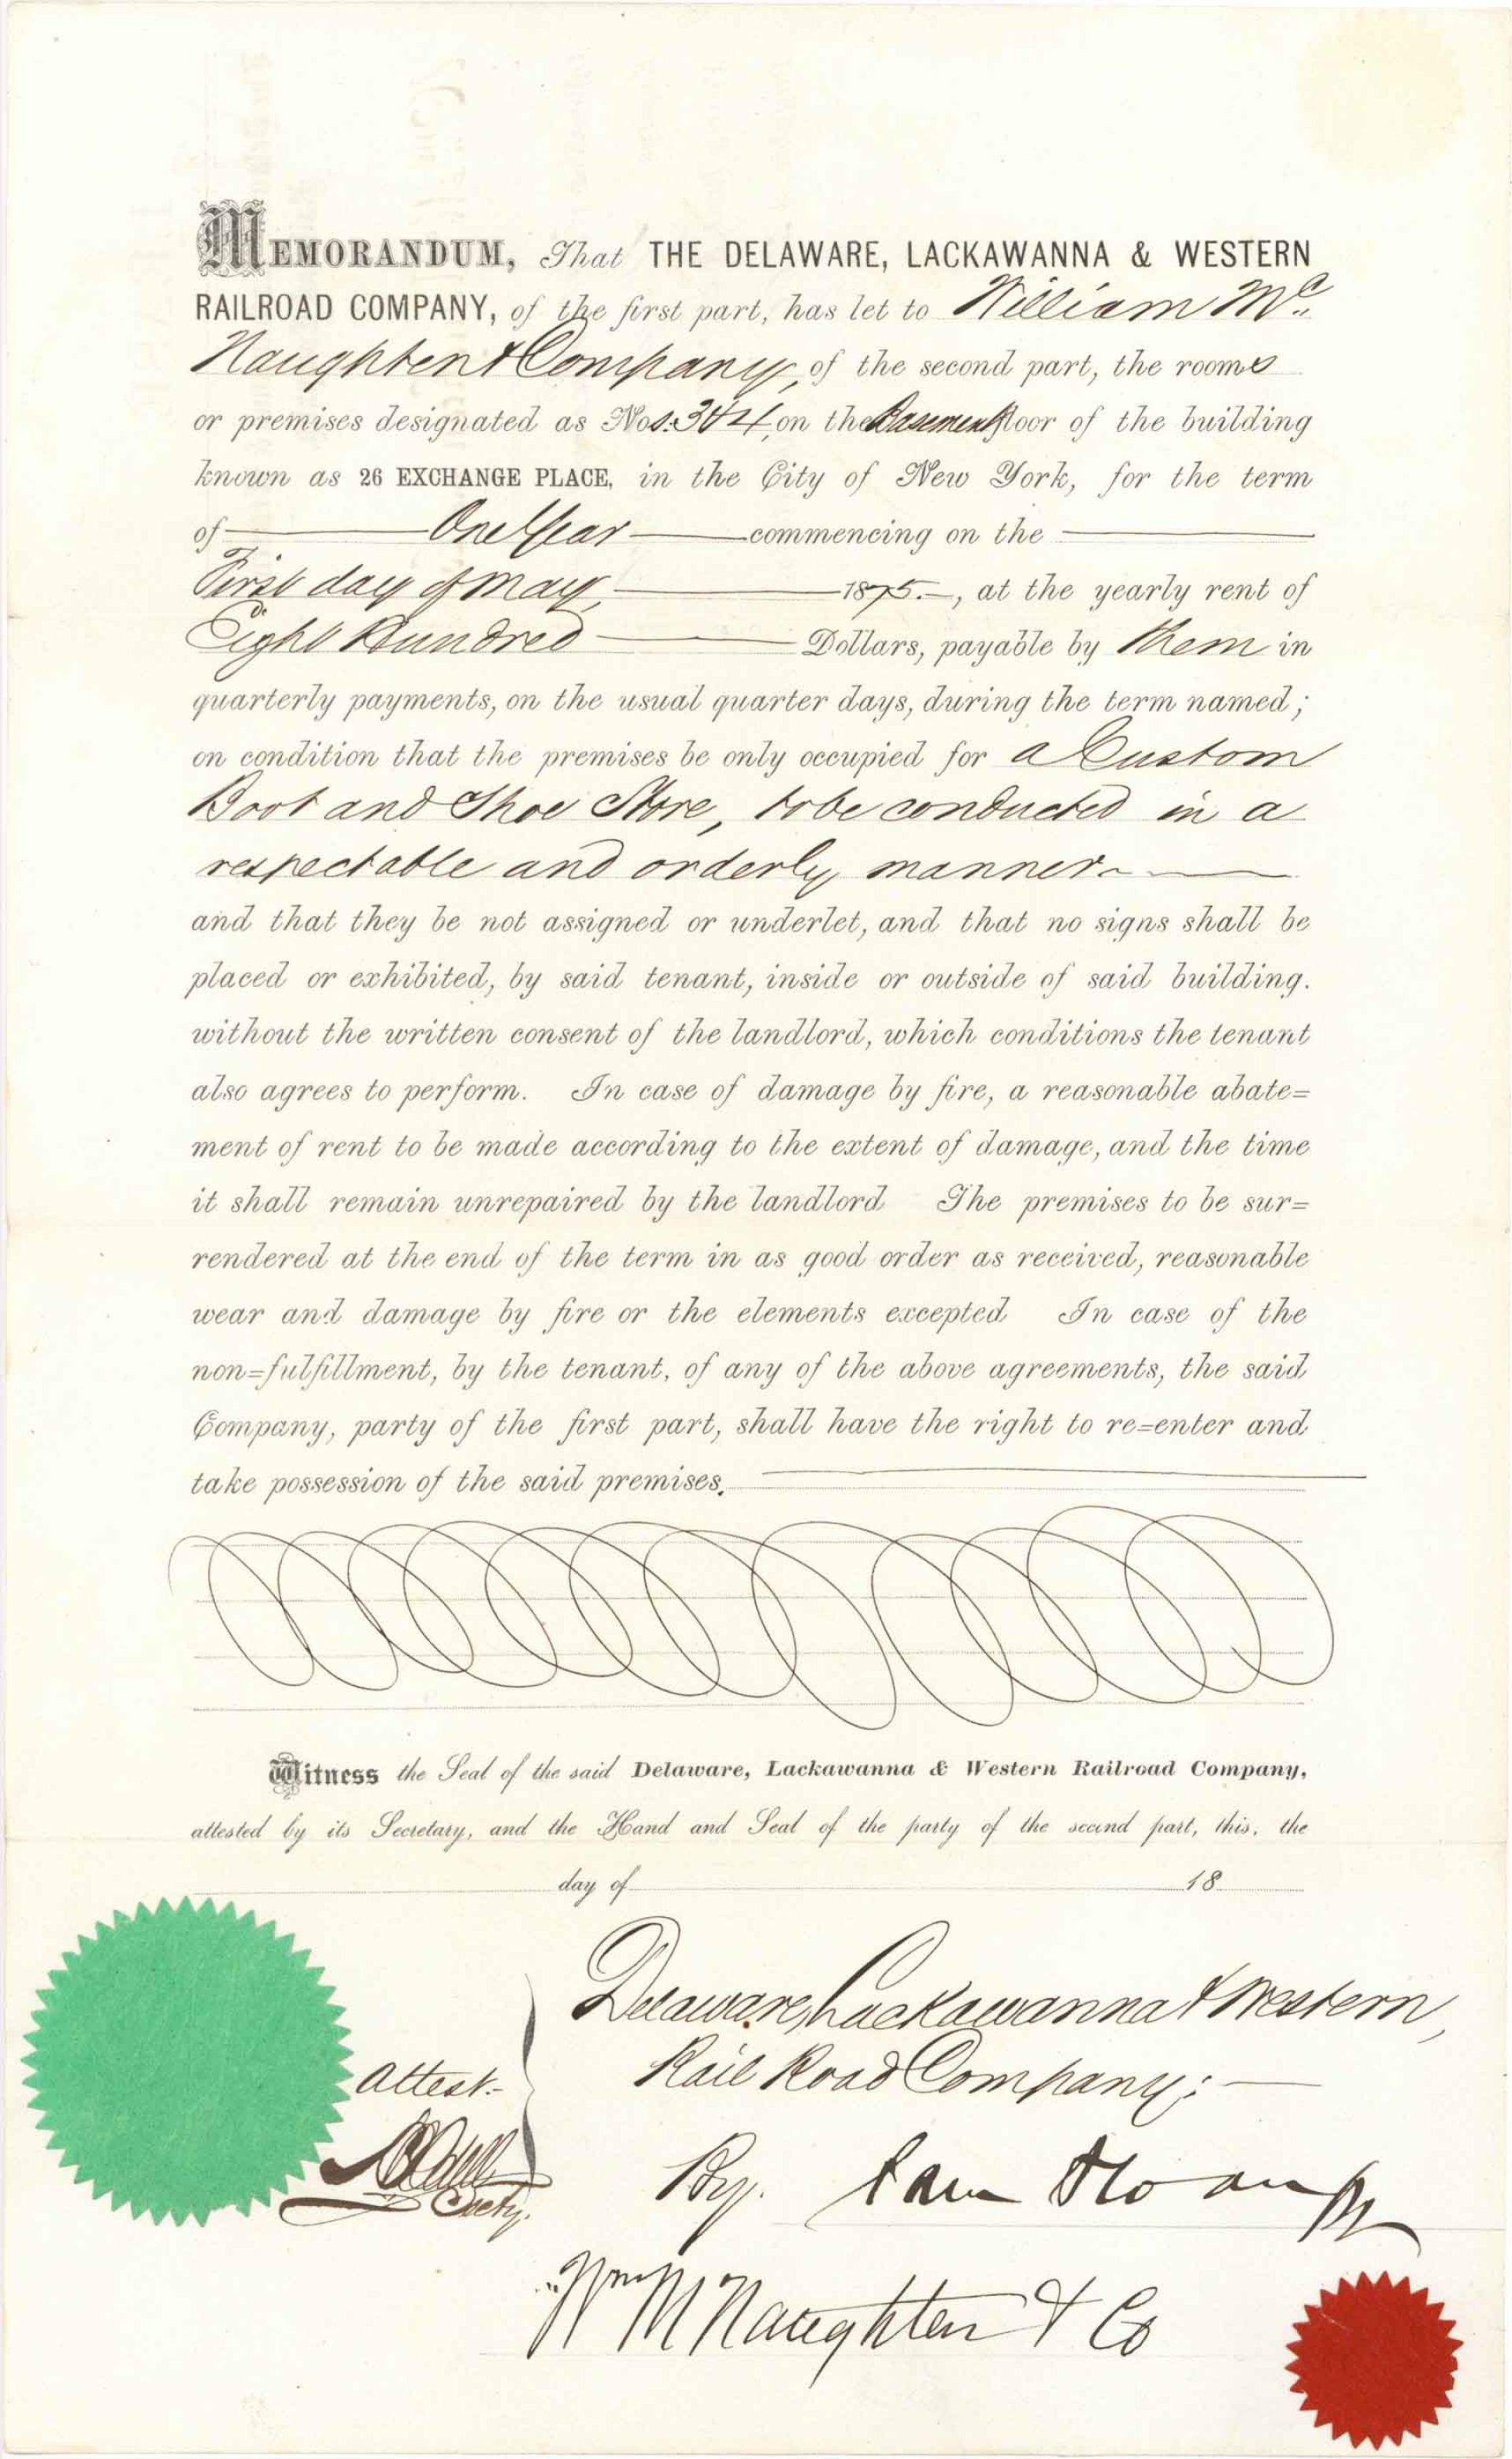 MEMORANDUM, That THE DELAWARE, LACKAWANNA & WESTERN
RAILROAD COMPANY, of the first part, has let to William Mc
Naughten & Company, of the second part, the rooms
or premises designated as Nos. 3 & 4, on the Basement floor of the building
known as 26 EXCHANGE PLACE, in the City of New York, for the term
of One Year commencing on the
First day of May, 1875.—, at the yearly rent of
Eight Hundred Dollars, payable by them in
quarterly payments, on the usual quarter days, during the term named;
on condition that the premises be only occupied for a Custom
Boot and Shoe Store, to be conducted in a
respectable and orderly manner.
and that they be not assigned or underlet, and that no signs shall be
placed or exhibited, by said tenant, inside or outside of said building.
without the written consent of the landlord, which conditions the tenant
also agrees to perform. In case of damage by fire, a reasonable abate=
ment of rent to be made according to the extent of damage, and the time
it shall remain unrepaired by the landlord The premises to be sur=
rendered at the end of the term in as good order as received, reasonable
wear and damage by fire or the elements excepted In case of the
non=fulfillment, by the tenant, of any of the above agreements, the said
Company, party of the first part, shall have the right to re=enter and
take possession of the said premises.
Witness the Seal of the said Delaware, Lackawanna & Western Railroad Company,
attested by its Secretary, and the Hand and Seal of the party of the second part, this, the
day of 18
Delaware, Lackawanna & Western,
Rail Road Company;
Attest:
By. Sam Sloan
Secty.
Wm McNaughten & Co